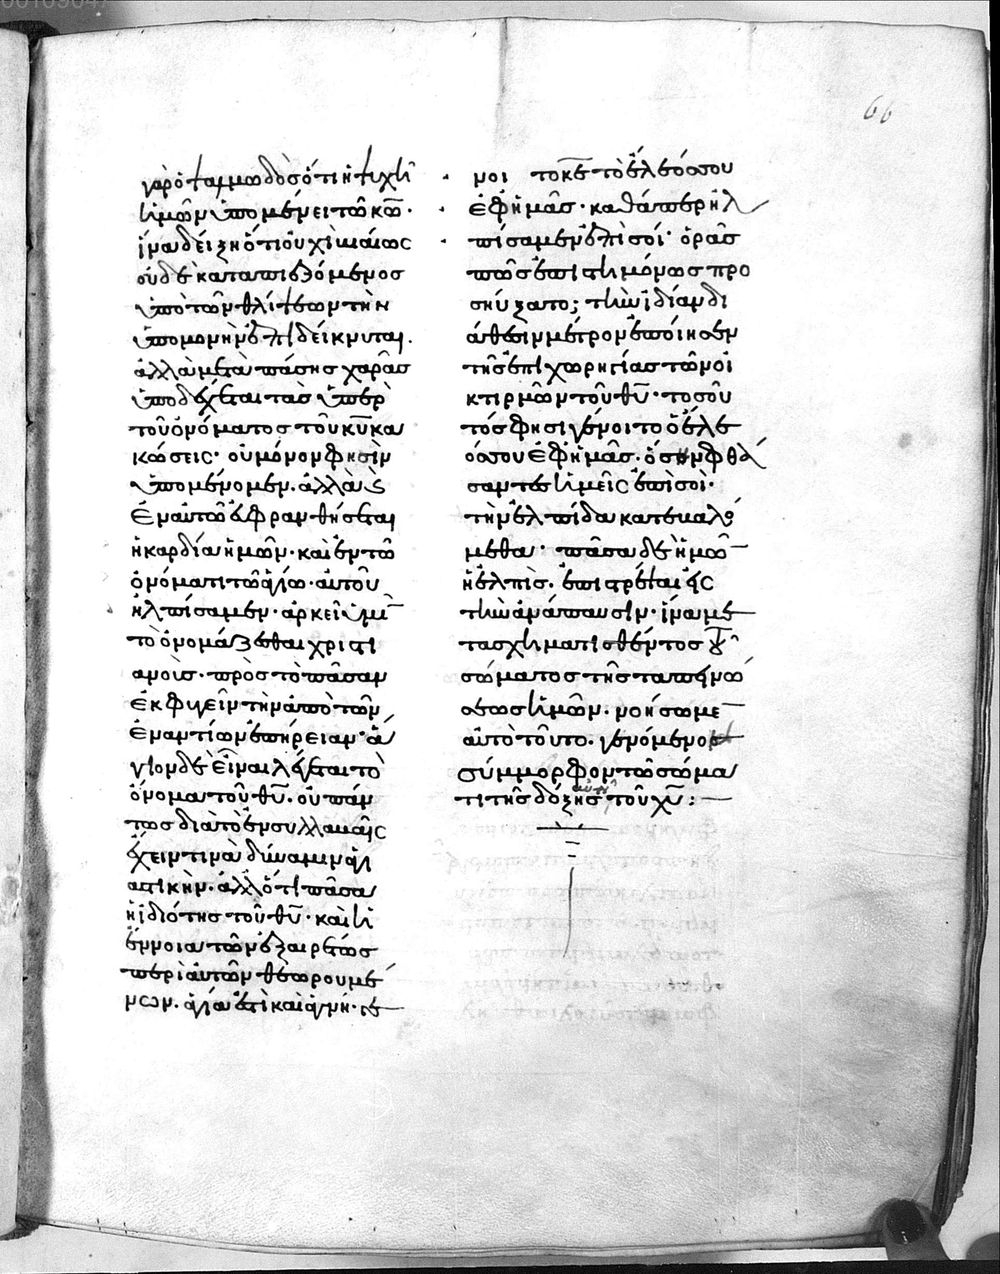 66
γὰρ ὁ ψαλμωδὸς ὅτι ἡ ψυχὴ
ἡμῶν ὑπομένει τῶ κ͞ω·
ἵνα δείξη ὅτι οὐ χὶ μαίως
οὐδὲ καταπιεζόμενος
ὑπὸ τῶν θλίψεων τὴν
ὑπομονὴν ἐπιδείκνυται.
ἀλλὰ μετὰ πάσης χαρᾶς
ὑποδέχεται τὰς ὑπὲρ
τοῦ ὀνόματος τοῦ κ͞υ κα
κώσεις· οὐ μόνον φησὶν
ὑπομένομεν. ἀλλὰ ϗ
ἐν αὐτῶ εὐφρανθήσεται
ἡ καρδία ἡμῶν· καὶ ἐν τῶ
ὀνόματι τῶ ἁγίω· αὐτοῦ
ἠλπίσαμεν· ἀρκεῖ ἡμῖ
τὸ ὀνομάζεσθαι χριστι
ανοὶς· πρὸς τὸ πᾶσαν
ἐκφυγεῖν τὴν ἀπὸ τῶν
ἐναντίων ἐπήρειαν· ἅ
γιον δὲ εἶναι λέγεται τὸ
ὄνομα τοῦ θ͞υ. οὐ πάν
τως διὰ τὸ ἐν συλλαβαῖς
ἔχειν τινὰ δύναμιν ἁγι
αστικὴν. ἀλλ ὅτι πᾶσα
ἡ ἰδιότης τοῦ θ͞υ· καὶ ἡ
ἔννοια τῶν ἐξαιρέτως
περὶ αὐτῶν θεωρουμέ
νων. ἁγία ἐστὶ καὶ ἁγνή· γέ
νοι το κ͞ε τὸ ἔλεός σου
ἐφ ἡμᾶς· καθάπερ ἠλ
πίσαμεν ἐπὶ σοί· ὁρᾶς
πῶς ἐπιστημόνως προ
σηύξατο; τὴν ἰδίαν δι
άθεσιν μέτρον ἐποίησεν
τῆς ἐπιχορηγίας τῶν οἰ
κτιρμῶν τοῦ θ͞υ· τοσοῦ
τός φησι γένοιτο ὁ ἔλε
ός σου ἐφ ἡμᾶς. ὅσην φθά
σαντες ἡμεῖς ἐπὶ σοὶ·
τὴν ἐλπίδα κατεβαλό
μεθα· πᾶσα δὲ ἡμῶ
ἡ ἐλπὶς. ἐπιστρέψαι εἰς
τὴν ἀνάπαυσιν· ἵνα με
τασχηματισθέντος τοῦ
σώματος τῆς ταπεινώ
σεως ἡμῶν. νοήσωμε
αὐτὸ τοῦτο. γενόμενον
σύμμορφον τῶ σώμα
τι τῆς δόξης τοῦ χ͞υ: